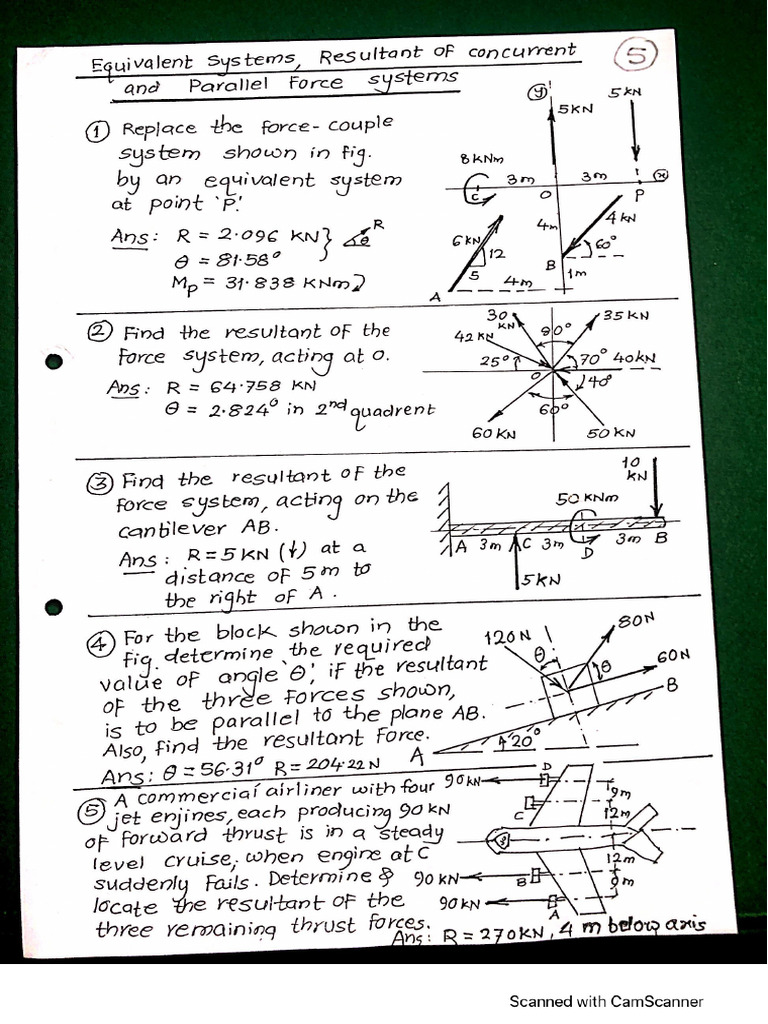 Equivalent Systems, Resultant of concurrent
and Parallel Force systems
5
① Replace the force-couple
system shown in fig.
by an equivalent system
at point 'P'.
Ans: R = 2.096 KN
θ = 81.58°
Mp = 31.838 KNm
R
θ
y
5KN
5 KN
8 KNm
3m
3m
x
C
O
P
4m
4 KN
6 KN
12
5
B
60°
1m
A
4m
② Find the resultant of the
force system, acting at O.
Ans: R = 64.758 KN
θ = 2.824° in 2nd quadrent
30
KN
80°
35 KN
42 KN
25°
70°
40KN
O
40°
60°
60 KN
50 KN
③ Find the resultant of the
force system, acting on the
cantilever AB.
Ans: R=5 KN (↓) at a
distance of 5m to
the right of A.
10
KN
50 KNm
A
3m
C
3m
D
3m
B
5KN
④ For the block shown in the
fig. determine the required
value of angle 'θ', if the resultant
of the three forces shown,
is to be parallel to the plane AB.
Also, find the resultant force.
Ans: θ = 56.31° R = 204.22 N
120N
80N
θ
θ
60N
B
A
20°
⑤ A commercial airliner with four
jet enjines, each producing 90 KN
of forward thrust is in a steady
level cruise, when engine at C
suddenly fails. Determine &
locate the resultant of the
three remaining thrust forces.
Ans: R = 270KN, 4 m below axis
90 KN
D
9m
C
12m
12m
90 KN
B
9m
90 KN
A
Scanned with CamScanner